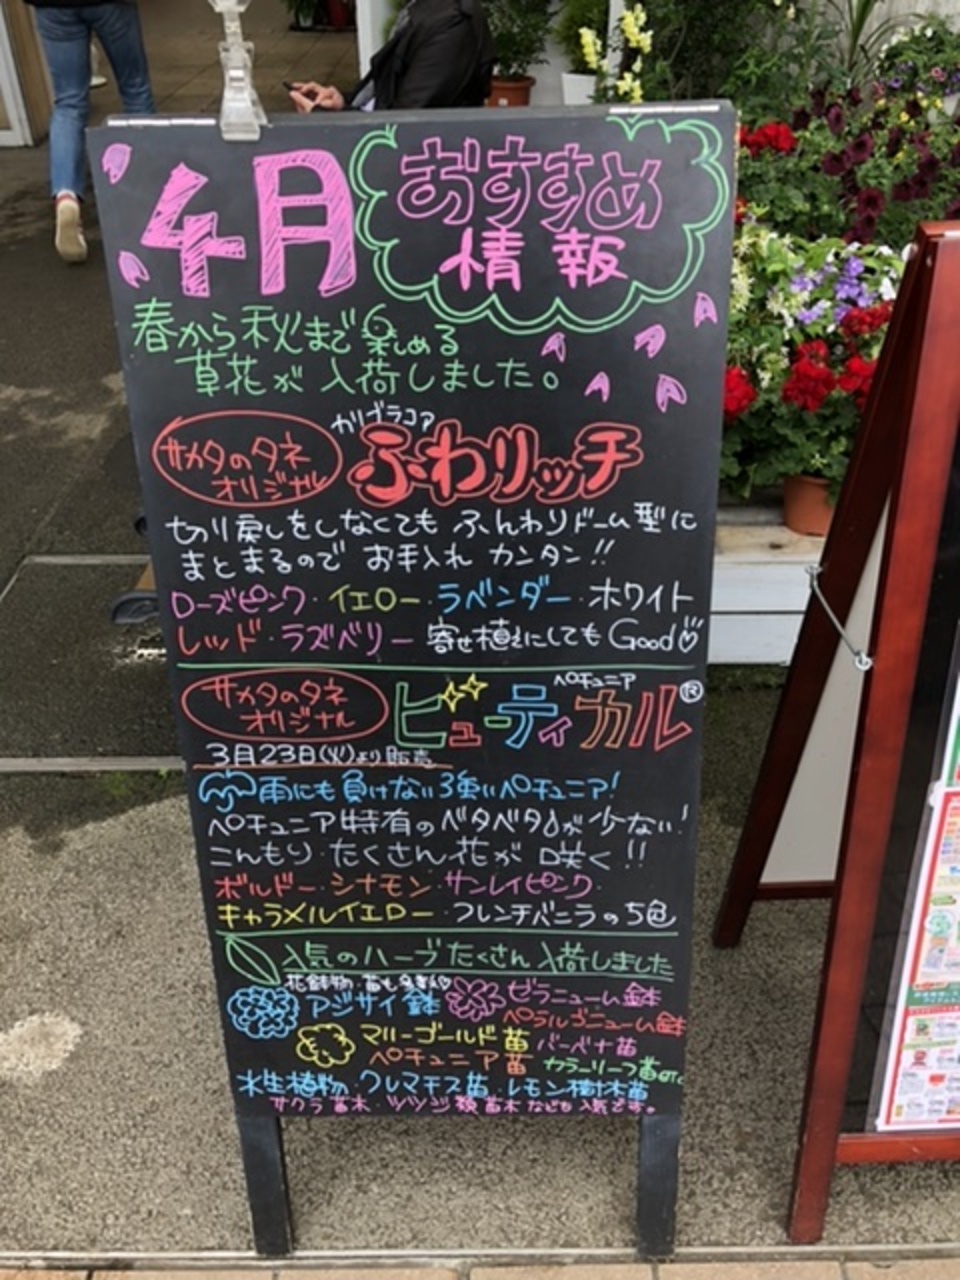 4月
おすすめ
情報
春から秋まで楽しめる
草花が入荷しました。
サカタのタネ
オリジナル
カリブラコア
ふわリッチ
切り戻しをしなくても ふんわりドーム型に
まとまるので お手入れ カンタン!!
ローズピンク・イエロー・ラベンダー・ホワイト
レッド・ラズベリー 寄せ植えにしてもGood
サカタのタネ
オリジナル
ペチュニア
ビューティカル®
3月23日(火)より販売
雨にも負けない強いペチュニア!
ペチュニア特有のベタベタが少ない!
こんもり・たくさん花が咲く!!
ボルドー・シナモン・サンレイピンク・
キャラメルイエロー・フレンチバニラの5色
人気のハーブたくさん入荷しました
花鉢物・苗も多数
アジサイ鉢
ゼラニューム鉢
ペラルゴニューム鉢
マリーゴールド苗 バーベナ苗
ペチュニア苗 カラーリーフ苗etc
水生植物・クレマチス苗・レモン樹木苗
サクラ苗木・ツツジ類苗木なども人気です。